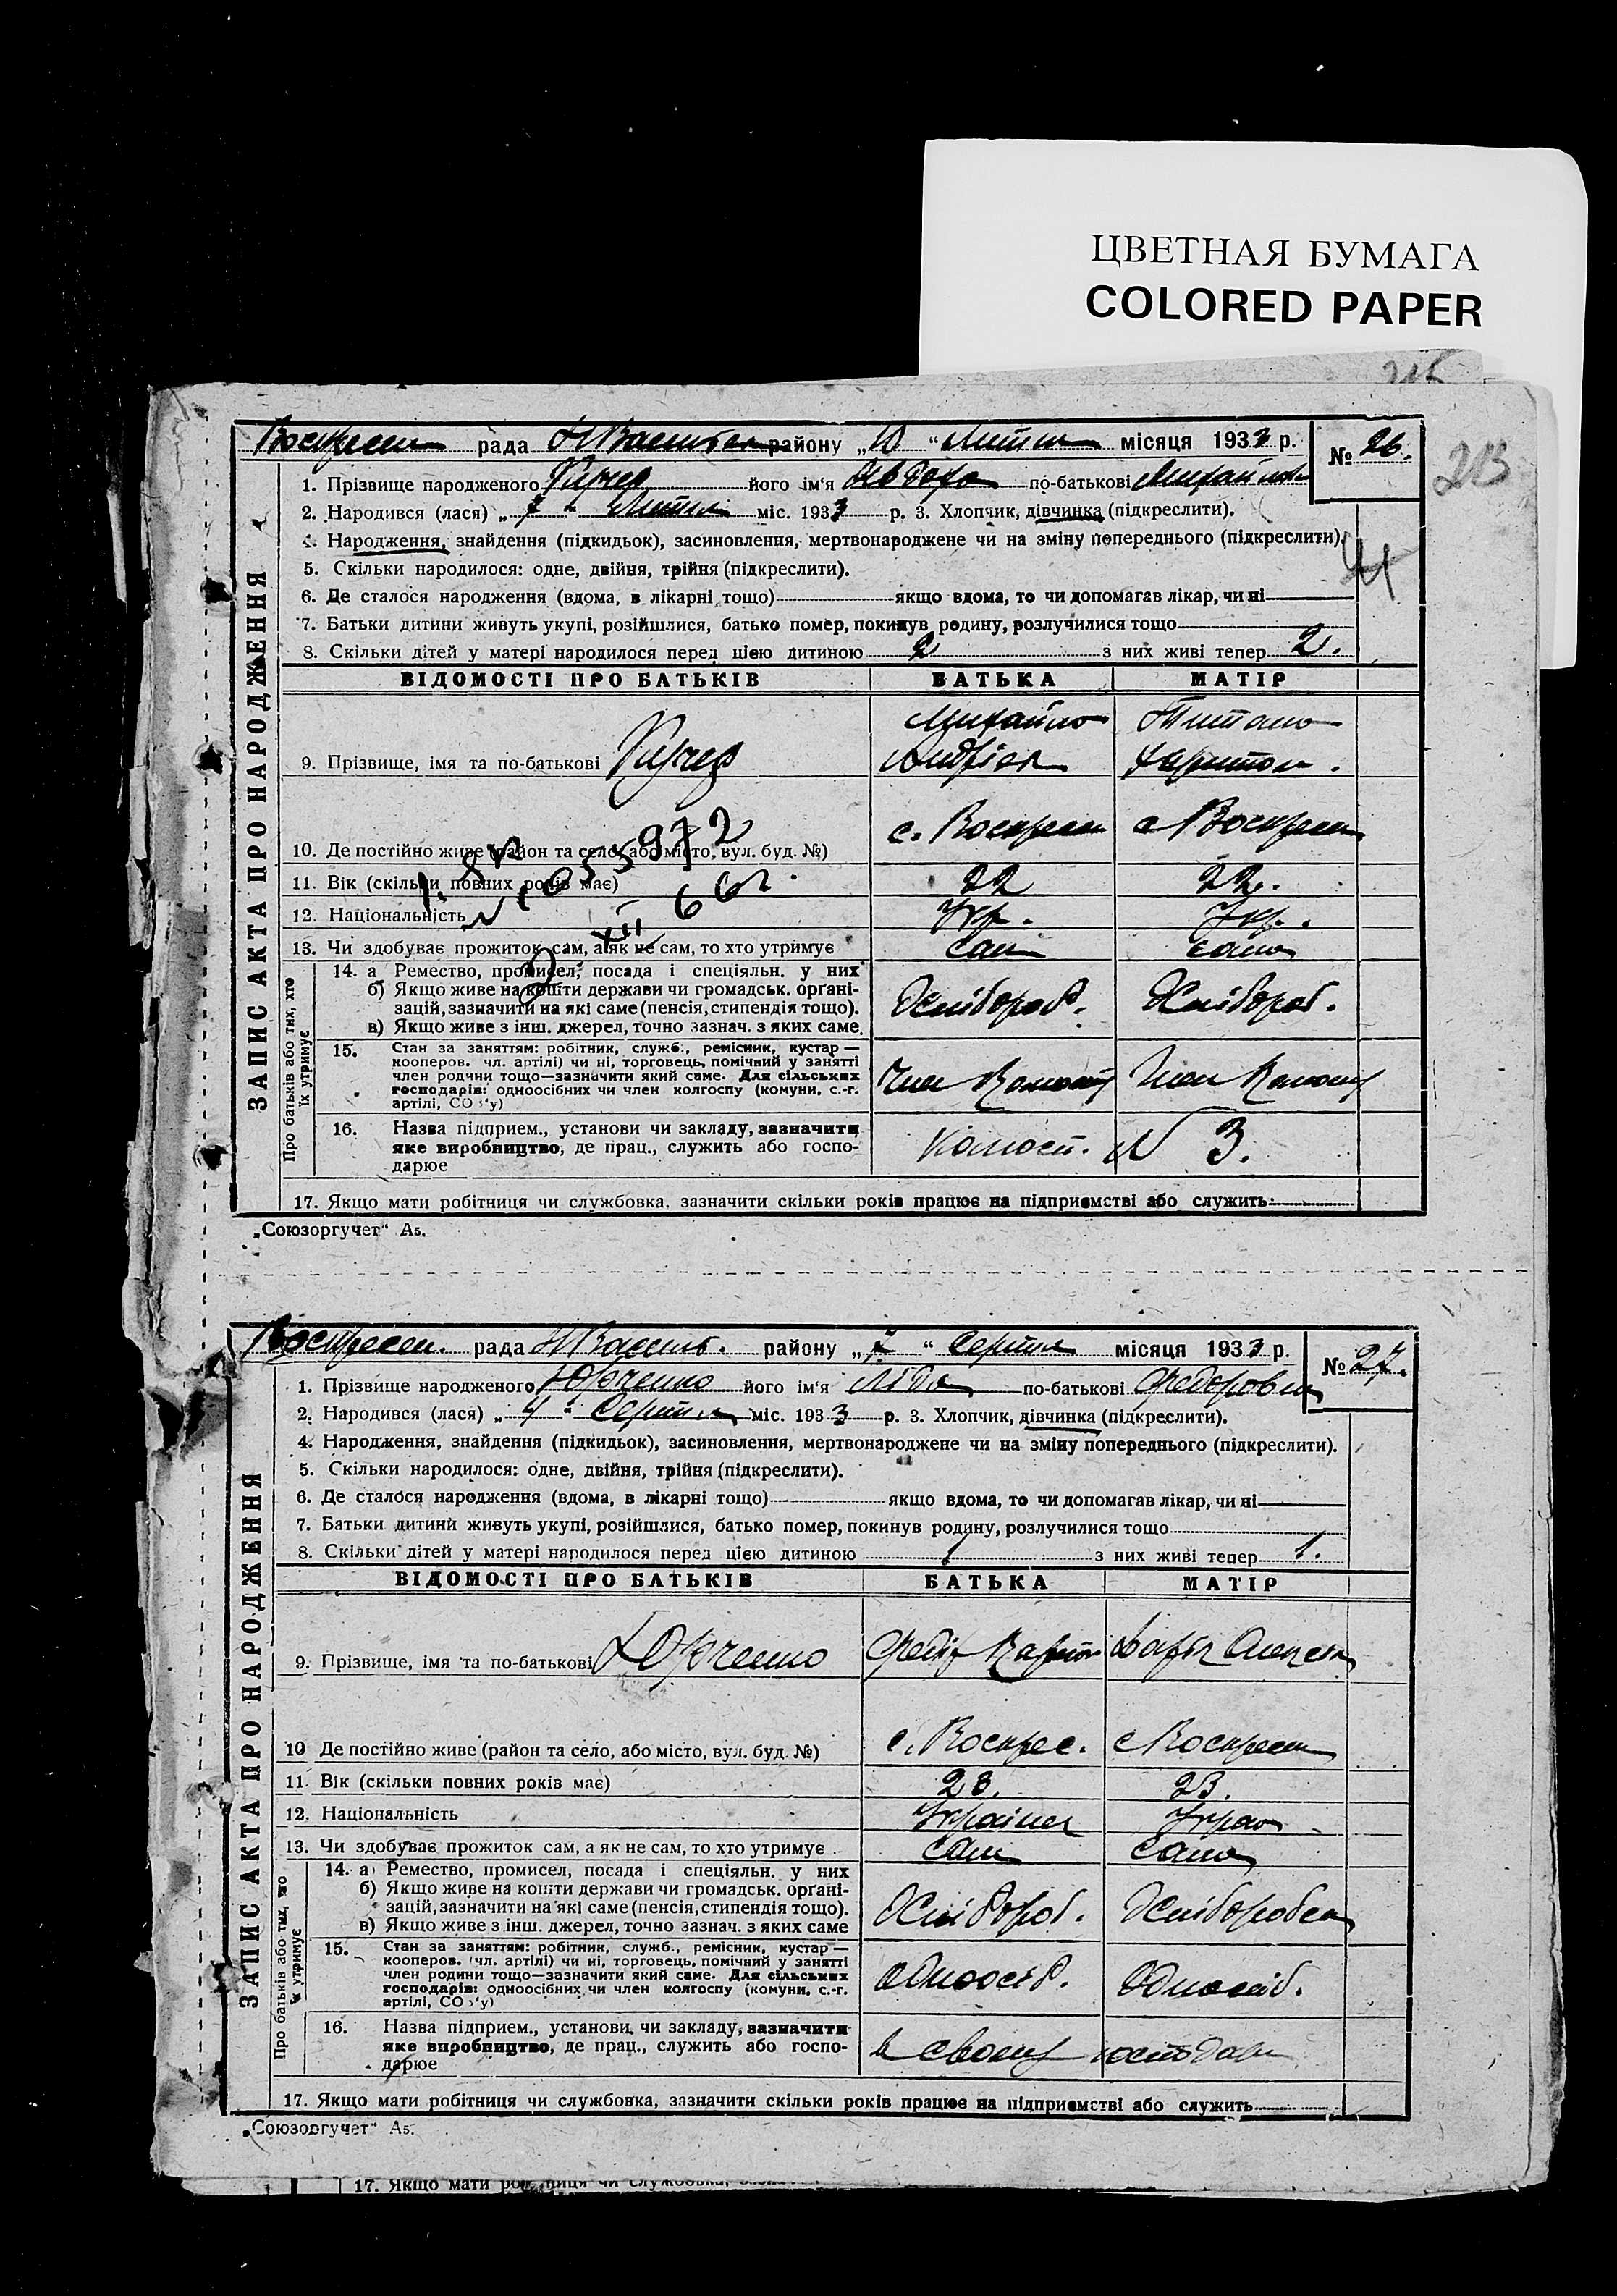 ЦВЕТНАЯ БУМАГА
COLORED PAPER
213
рада Н Васильев району „10“ місяця 1933 р. № 26.
ЗАПИС АКТА ПРО НАРОДЖЕННЯ
1. Прізвище народженого Кучер його ім'я по-батькові Михайлов
2. Народився (лася) „7“ міс. 1933 р. 3. Хлопчик, дівчинка (підкреслити).
4. Народження, знайдення (підкидьок), засиновлення, мертвонароджене чи на зміну попереднього (підкреслити).
5. Скільки народилося: одне, двійня, трійня (підкреслити).
6. Де сталося народження (вдома, в лікарні тощо) якщо вдома, то чи допомагав лікар, чи ні
7. Батьки дитини живуть укупі, розійшлися, батько помер, покинув родину, розлучилися тощо
8. Скільки дітей у матері народилося перед цією дитиною 2 з них живі тепер 2.
ВІДОМОСТІ ПРО БАТЬКІВ БАТЬКА МАТІР
9. Прізвище, імя та по-батькові Кучер Михайло
10. Де постійно живе (район та село, або місто, вул. буд. №) с. Воскресен с Воскресен
11. Вік (скільки повних років має) 22 22.
12. Національність Укр. Укр.
13. Чи здобуває прожиток сам, а як не сам, то хто утримує сам сама
Про батьків або тих, хто їх утримує
14. а Ремество, промисел, посада і спеціяльн. у них
б) Якщо живе на кошти держави чи громадськ. органі-
зацій, зазначити на які саме (пенсія, стипендія тощо).
в) Якщо живе з інш. джерел, точно зазнач. з яких саме.
Хлібороб. Хлібороб.
15. Стан за заняттям: робітник, служб., ремісник, кустар —
кооперов. чл. артілі) чи ні, торговець, помічний у занятті
член родини тощо—зазначити який саме. Для сільських
господарів: одноосібних чи член колгоспу (комуни, с.-г.
артілі, СОЗ'у)
Член Член
16. Назва підприєм., установи чи закладу, зазначити
яке виробництво, де прац., служить або госпо-
дарює
№ 3.
17. Якщо мати робітниця чи службовка, зазначити скільки років працює на підприємстві або служить
„Союзоргучет“ А5.
Воскресен. рада Н Василь. району „7“ Серпня місяця 1933 р. № 27.
ЗАПИС АКТА ПРО НАРОДЖЕННЯ
1. Прізвище народженого Юрченко його ім'я Ліда по-батькові Федоровна
2. Народився (лася) „4“ Серпня міс. 1933 р. 3. Хлопчик, дівчинка (підкреслити).
4. Народження, знайдення (підкидьок), засиновлення, мертвонароджене чи на зміну попереднього (підкреслити).
5. Скільки народилося: одне, двійня, трійня (підкреслити).
6. Де сталося народження (вдома, в лікарні тощо) якщо вдома, то чи допомагав лікар, чи ні
7. Батьки дитини живуть укупі, розійшлися, батько помер, покинув родину, розлучилися тощо
8. Скільки дітей у матері народилося перед цією дитиною 1 з них живі тепер 1.
ВІДОМОСТІ ПРО БАТЬКІВ БАТЬКА МАТІР
9. Прізвище, імя та по-батькові Юрченко Федір Дарія
10 Де постійно живе (район та село, або місто, вул. буд. №) с. Воскрес. с Воскресен
11. Вік (скільки повних років має) 23. 23.
12. Національність
13. Чи здобуває прожиток сам, а як не сам, то хто утримує сам сама
Про батьків або тих, що їх утримує
14. а) Ремество, промисел, посада і спеціяльн. у них
б) Якщо живе на кошти держави чи громадськ. органі-
зацій, зазначити на які саме (пенсія, стипендія тощо).
в) Якщо живе з інш. джерел, точно зазнач. з яких саме
Хлібороб.
15. Стан за заняттям: робітник, служб., ремісник, кустар —
кооперов. чл. артілі) чи ні, торговець, помічний у занятті
член родини тощо—зазначити який саме. Для сільських
господарів: одноосібних чи член колгоспу (комуни, с.-г.
артілі, СОЗ'у)
Одноосіб. Одноосіб.
16. Назва підприєм., установи чи закладу, зазначити
яке виробництво, де прац., служить або госпо-
дарює
в своему
17. Якщо мати робітниця чи службовка, зазначити скільки років працює на підприємстві або служить
„Союзоргучет“ А5.
17. Якщо мати